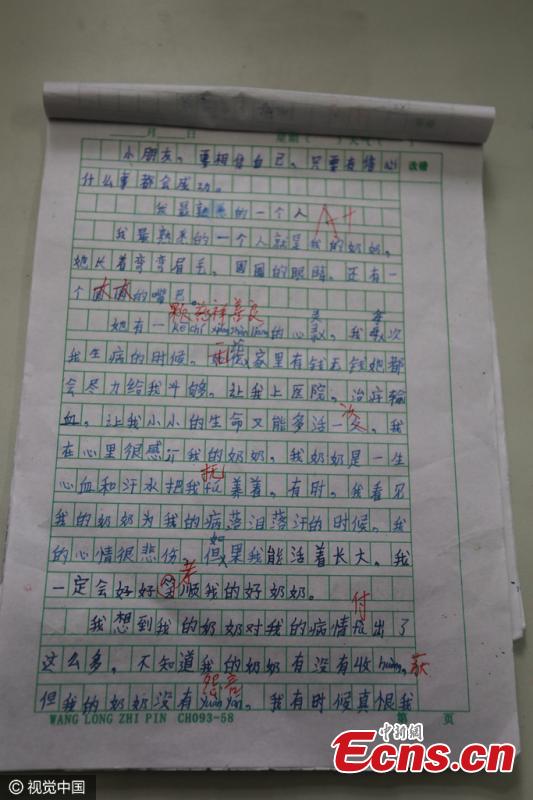 月 日
小朋友，要相信自己，只要有信心
改错
什么事都会成功。
我最熟悉的一个人 A+
我最熟悉的一个人就是我的奶奶，
她长着弯弯眉毛，圆圆的眼睛，还有一
个大大的嘴巴。
颗慈祥善良
她有一 的心 我每次
我生病的时候。 家里有钱无钱她都
会尽力给我斗够。让我上医院，治疗输
血，让我小小的生命又能多活一次。我
在心里很感 我的奶奶。我奶奶是一生
抚
心血和汗水把我fu养着。有时，我看见
我的奶奶为我的病落泪落汗的时候。我
如
的心情很悲伤。但果我能活着长大。我
孝
一定会好好 顺我的好奶奶。
付
我想到我的奶奶对我的病情 出了
这么多，不知道我的奶奶有没有收huò，获
怨言
但我的奶奶没有yuàn yán。我有时候真恨我
WANG LONG ZHI PIN CH093-58 第 页
中新网
Ecns.cn
© 视觉中国